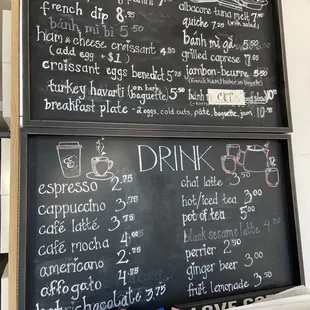 french dip 8.75
bánh mì bì 5.50
Ham & cheese croissant 4.50
(add egg + $1)
croissant eggs benedict 5.75
turkey havarti (on herb baguette) 5.50
breakfast plate - 2 eggs, cold cuts, pâté, baguette, jam 10.75
albacore tuna melt 7.50
quiche 7.25 (with salad)
bánh mì gà 5.50
grilled caprese 7.50
jambon-beurre 5.50
(french ham / butter in baguette)
bánh
DRINK
espresso 2.75
cappuccino 3.75
café latté 3.75
café mocha 4.00
americano 2.75
affogato 4.25
hot chocolate 3.75
chai latte 3.50
hot/iced tea 3.00
pot of tea 5.00
black sesame latte 4.00
perrier 2.50
ginger beer 3.00
fruit lemonade 3.50
LOVE